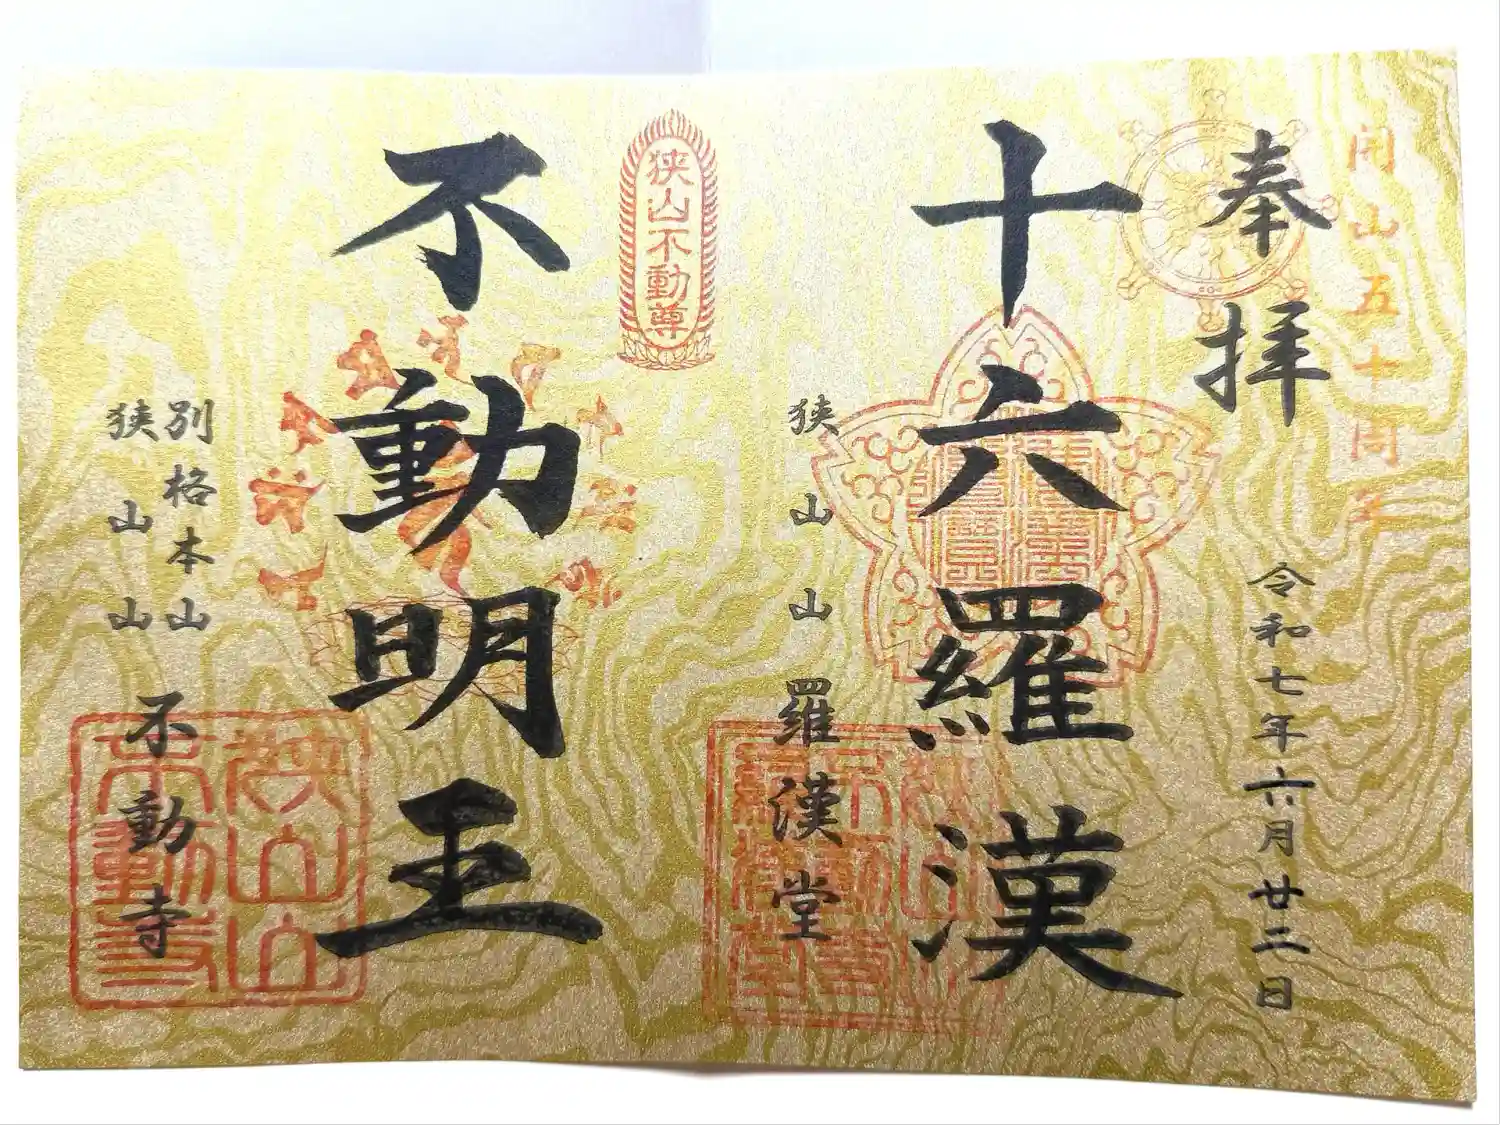 開山五十周年
奉拝
令和七年六月廿二日
十六羅漢
狭山山羅漢堂
狭山不動尊
不動明王
別格本山
狭山山
不動寺
狭山山
不動寺